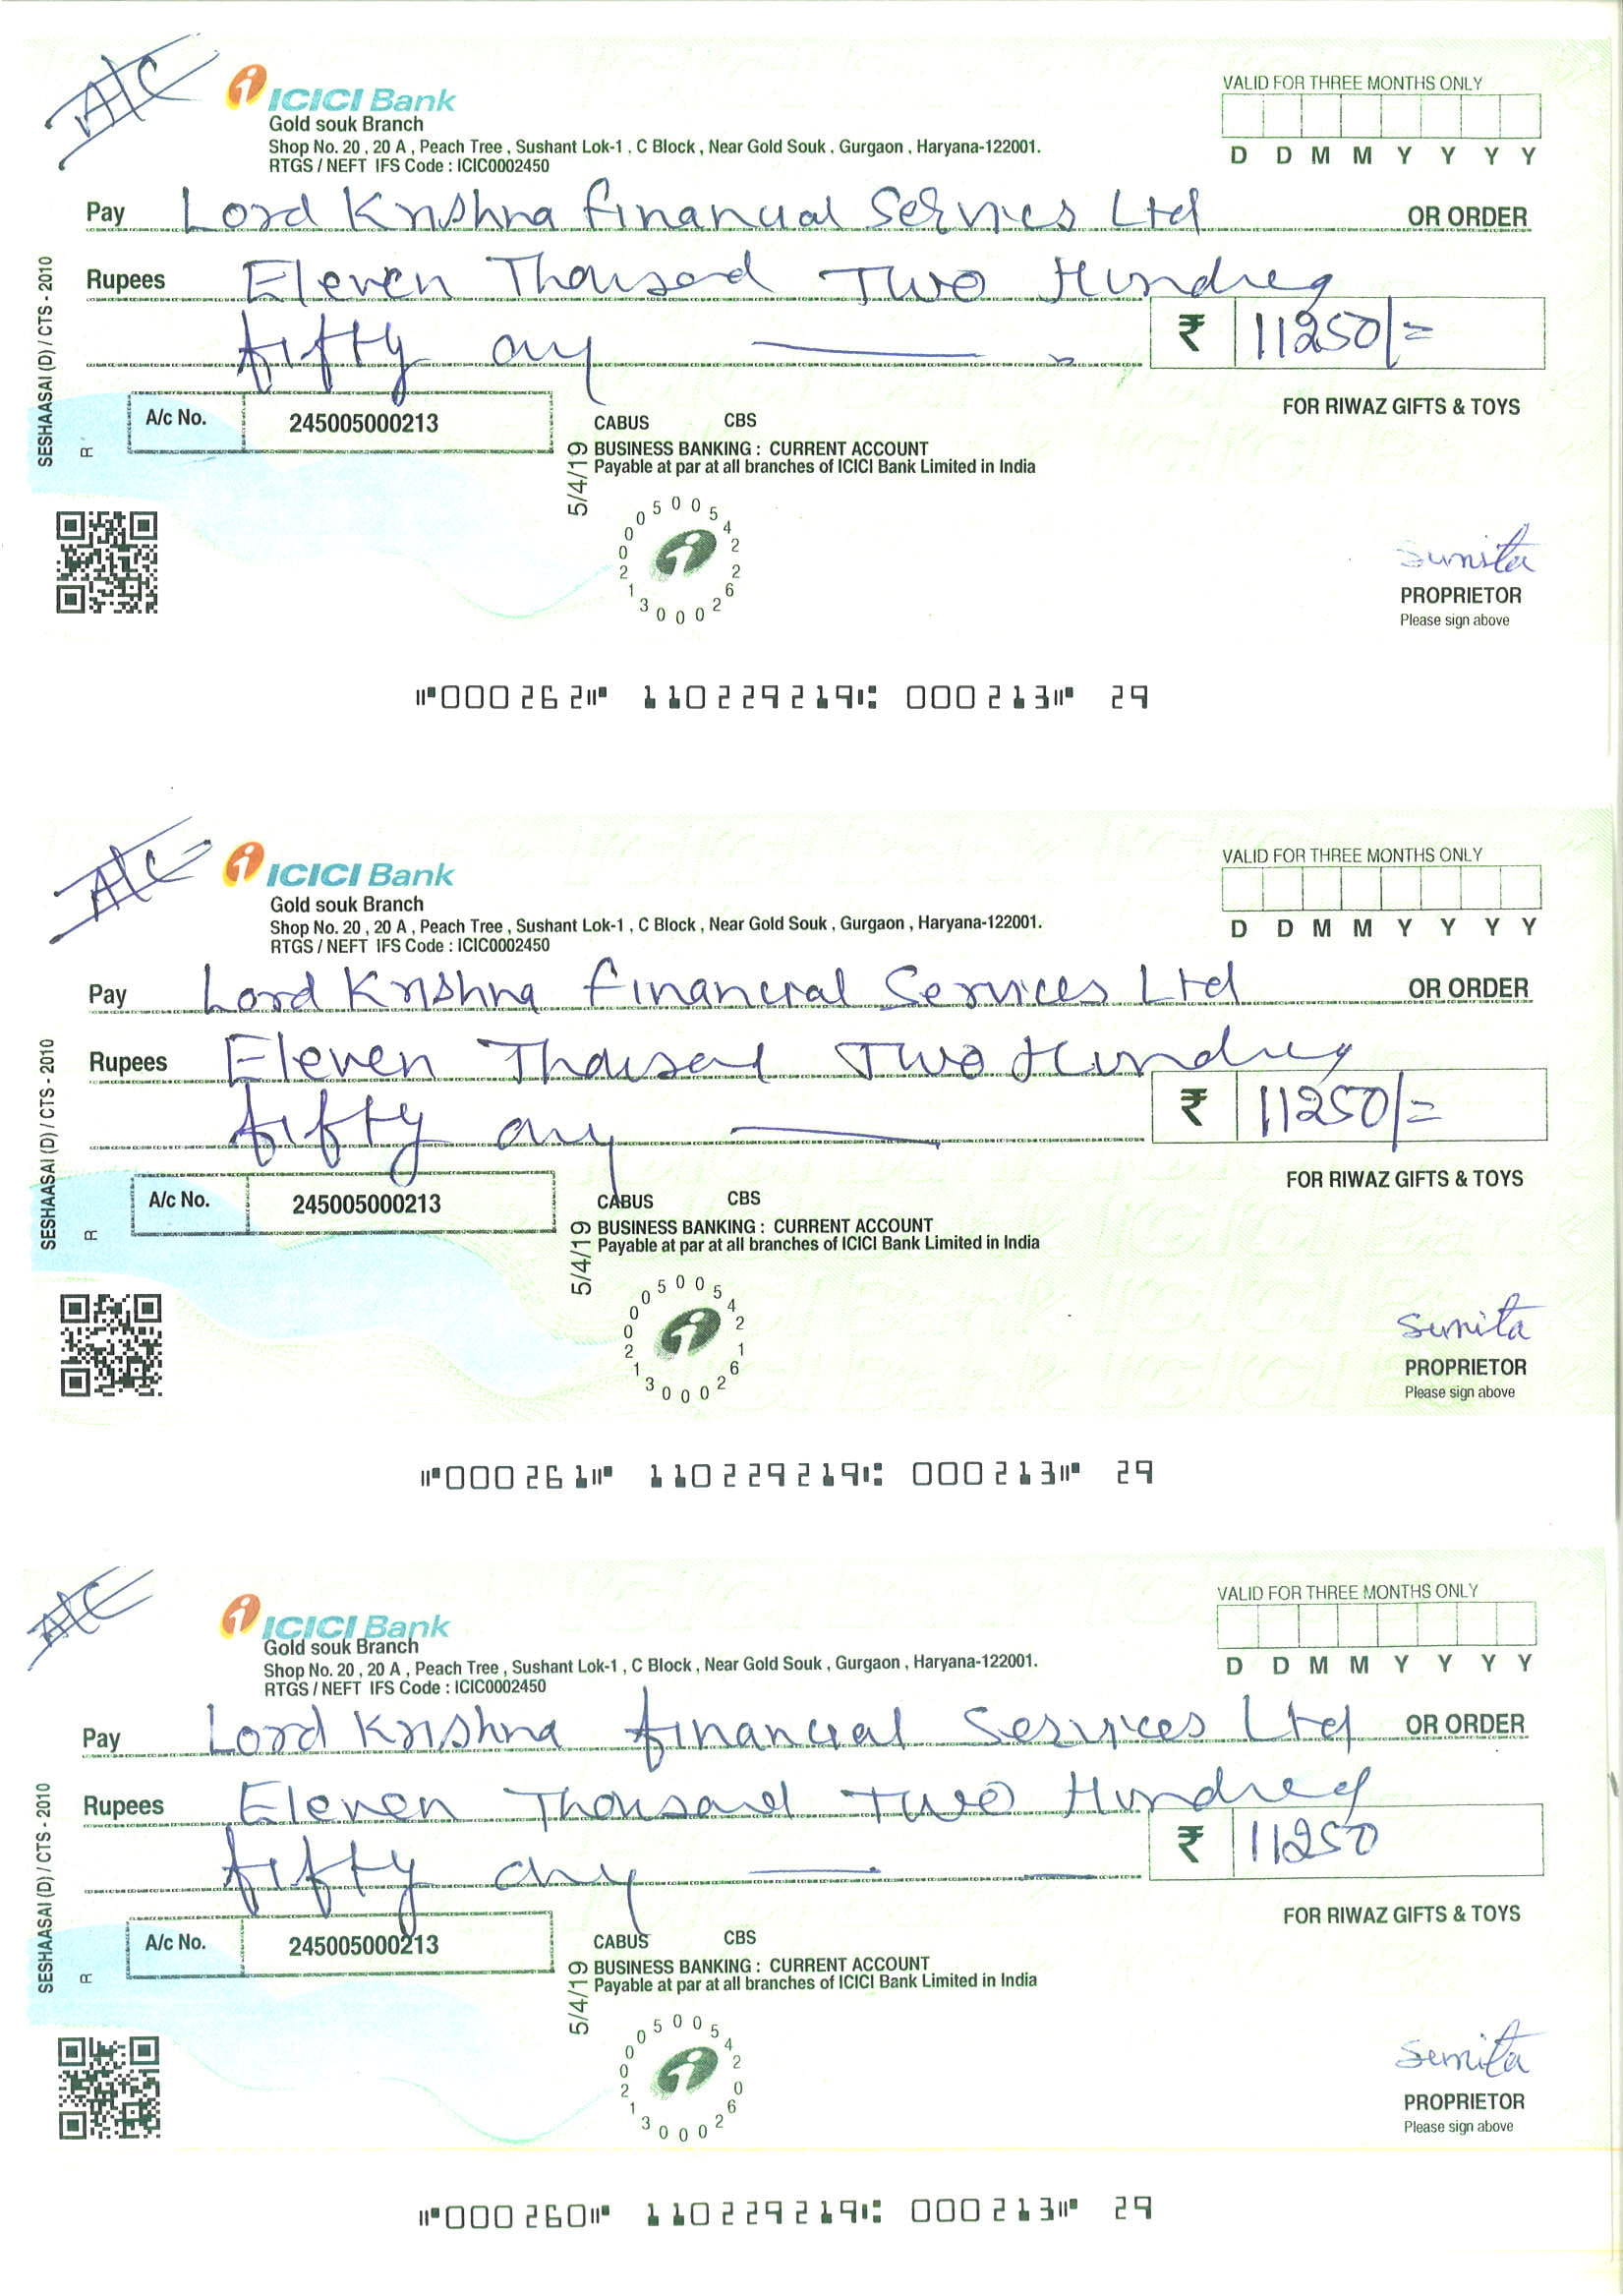 A/C
ICICI Bank
Gold souk Branch
Shop No. 20 , 20 A , Peach Tree , Sushant Lok-1 , C Block , Near Gold Souk , Gurgaon , Haryana-122001.
RTGS / NEFT IFS Code : ICIC0002450
VALID FOR THREE MONTHS ONLY
D D M M Y Y Y Y
Pay Lord Krishna Financial Services Ltd OR ORDER
Rupees Eleven Thousand Two Hundred
fifty only
₹ 11250/=
A/c No. 245005000213
FOR RIWAZ GIFTS & TOYS
CABUS CBS
BUSINESS BANKING : CURRENT ACCOUNT
Payable at par at all branches of ICICI Bank Limited in India
5/4/19
SESHAASAI (D) / CTS - 2010
R
245005000213000262
Sunita
PROPRIETOR
Please sign above
⑈000262⑈ 110229219⑆ 000213⑈ 29
A/C
ICICI Bank
Gold souk Branch
Shop No. 20 , 20 A , Peach Tree , Sushant Lok-1 , C Block , Near Gold Souk , Gurgaon , Haryana-122001.
RTGS / NEFT IFS Code : ICIC0002450
VALID FOR THREE MONTHS ONLY
D D M M Y Y Y Y
Pay Lord Krishna Financial Services Ltd OR ORDER
Rupees Eleven Thousand Two Hundred
fifty only
₹ 11250/=
A/c No. 245005000213
FOR RIWAZ GIFTS & TOYS
CABUS CBS
BUSINESS BANKING : CURRENT ACCOUNT
Payable at par at all branches of ICICI Bank Limited in India
5/4/19
SESHAASAI (D) / CTS - 2010
R
245005000213000261
Sunita
PROPRIETOR
Please sign above
⑈000261⑈ 110229219⑆ 000213⑈ 29
A/C
ICICI Bank
Gold souk Branch
Shop No. 20 , 20 A , Peach Tree , Sushant Lok-1 , C Block , Near Gold Souk , Gurgaon , Haryana-122001.
RTGS / NEFT IFS Code : ICIC0002450
VALID FOR THREE MONTHS ONLY
D D M M Y Y Y Y
Pay Lord Krishna Financial Services Ltd OR ORDER
Rupees Eleven Thousand Two Hundred
fifty only
₹ 11250
A/c No. 245005000213
FOR RIWAZ GIFTS & TOYS
CABUS CBS
BUSINESS BANKING : CURRENT ACCOUNT
Payable at par at all branches of ICICI Bank Limited in India
5/4/19
SESHAASAI (D) / CTS - 2010
R
245005000213000260
Sunita
PROPRIETOR
Please sign above
⑈000260⑈ 110229219⑆ 000213⑈ 29